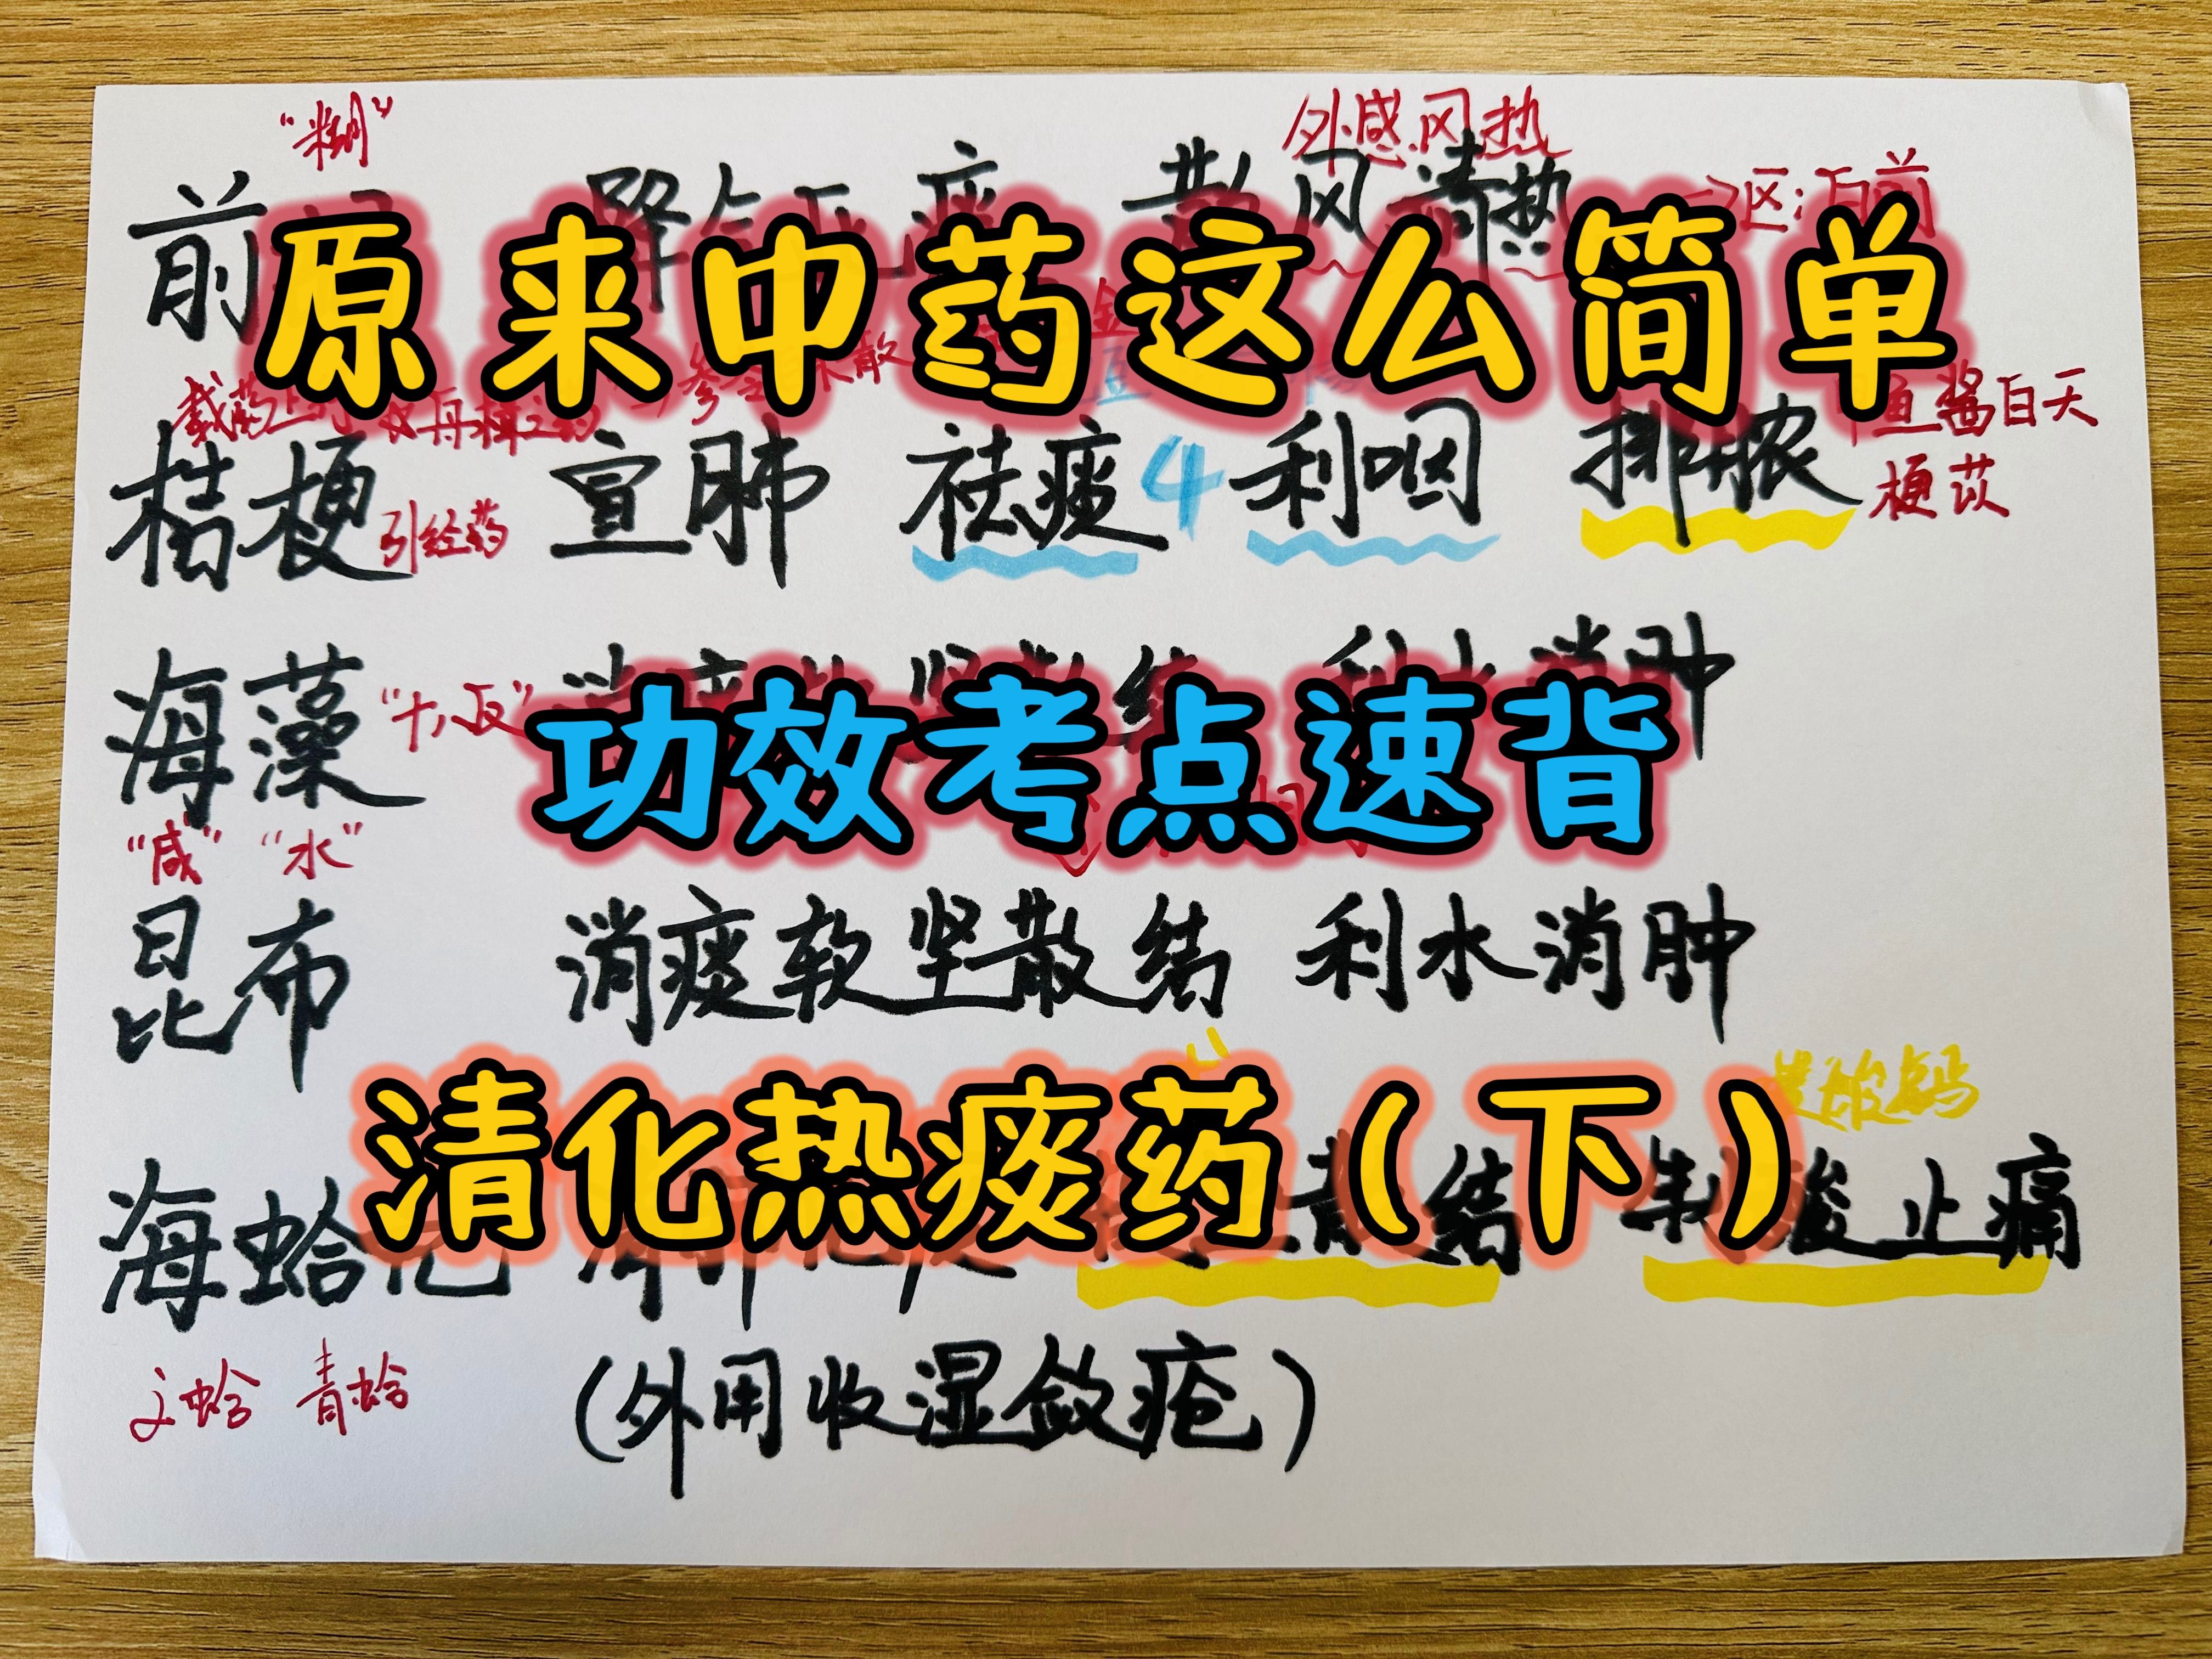 "糊"
外感风热
前 散风清热 区:白前
原来中药这么简单
载药上行 舟楫之药
鱼酱白天
桔梗 引经药 宣肺 祛痰 4 利咽 排脓 梗苡
海藻 "十八反" 利水消肿
功效考点速背
"咸" "水"
昆布 消痰软坚散结 利水消肿
清化热痰药(下)
海蛤壳 散结 制酸止痛
文蛤 青蛤 (外用收湿敛疮)